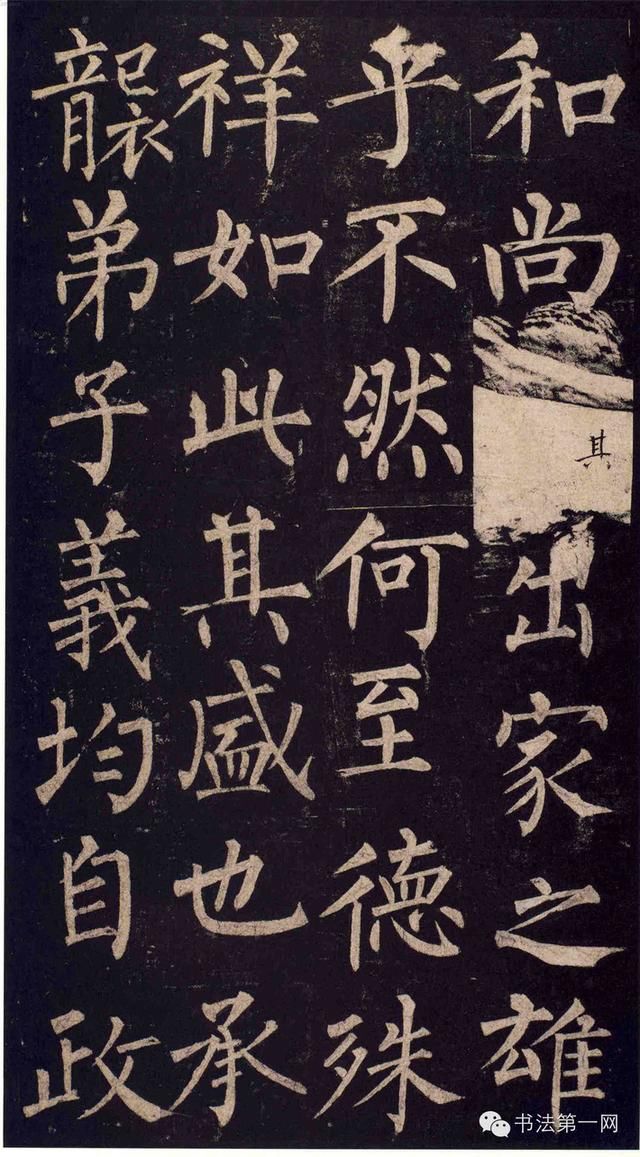 和尚其出家之雄
乎不然何至德殊
祥如此其盛也承
襲弟子義均自政
书法第一网